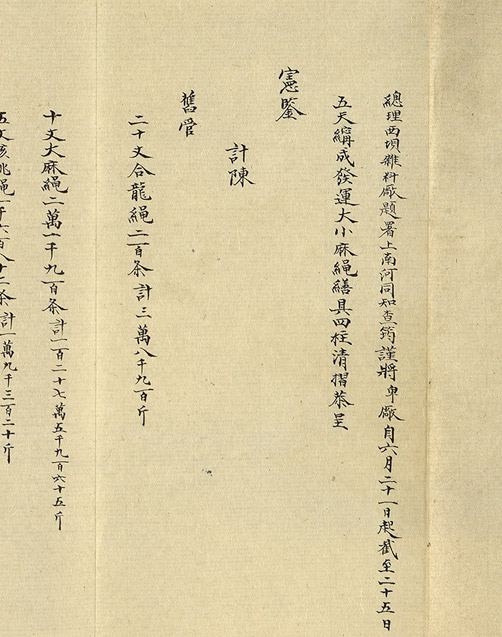 總理西壩雜料廠題署上南河同知查筠謹將卑廠自六月二十一日起截至二十五日
五天綑成發運大小麻繩繕具四柱清摺恭呈
憲鑒
計陳
舊管
二十丈合龍繩二百条計三萬八千九百斤
十丈大麻繩二萬一千九百条計一百二十七萬五千九百六十五斤
繩一千六百八十二条計一萬九千三百二十斤